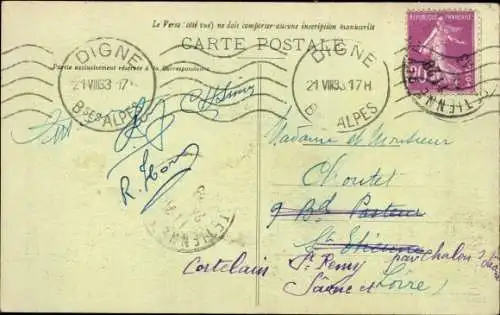 Le Verso (côté vue) ne doit comporter aucune inscription manuscrite
CARTE POSTALE
Partie exclusivement réservée à la Correspondance
DIGNE
21 VIII 33 17H
BSES ALPES
DIGNE
21 VIII 33 17H
BSES ALPES
REPUBLIQUE FRANÇAISE
20c
Madame et Monsieur
Choutet
9 Bd Pasteur
St Etienne
Loire
Costelain
St Remy par Chalon s/ Saône
Saône et